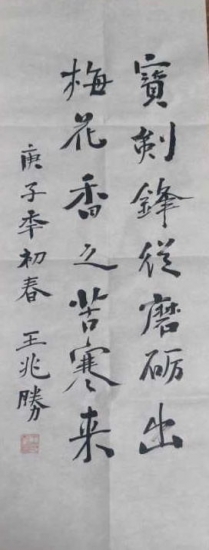 寶剣鋒從磨砺出
梅花香之苦寒来
庚子年初春 王兆勝